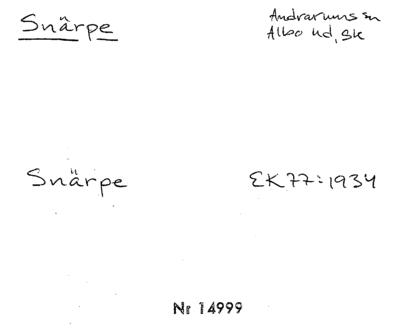 Snärpe
Andrarums sn
Albo hd, Sk
Snärpe
EK77:1934
Nr 14999